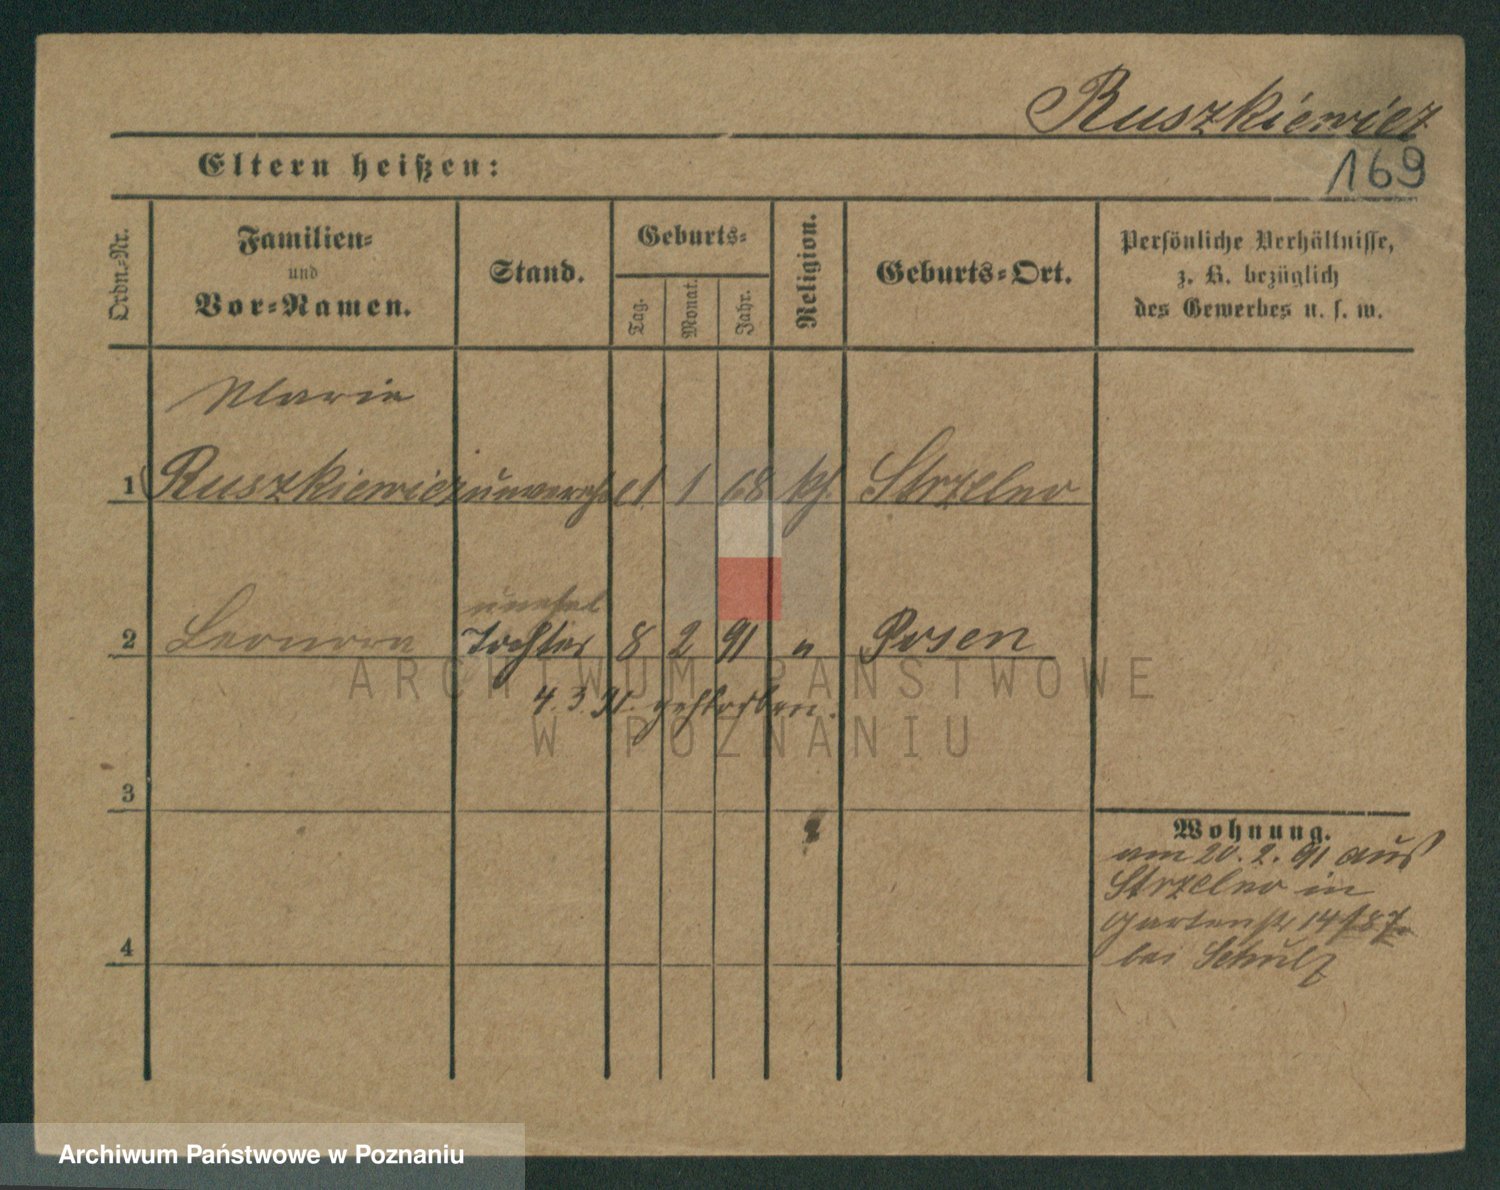 Ruszkiewicz
169
Eltern heißen:
Ordn.-Nr.
Familien-
und
Vor-Namen.
Stand.
Geburts-
Tag.
Monat.
Jahr.
Religion.
Geburts-Ort.
Persönliche Verhältnisse,
z. B. bezüglich
des Gewerbes u. s. w.
Marie
1 Ruszkiewicz unvereh 1 68 kh. Strzelno
unehel
2 Leonora Tochter 8 2 91 " Posen
4.3.91. gestorben.
ARCHIWUM PAŃSTWOWE
W POZNANIU
3
Wohnung.
am 20.2.91 aus
Strzelno in
Gartenstr 14
bei Schulz
4
Archiwum Państwowe w Poznaniu